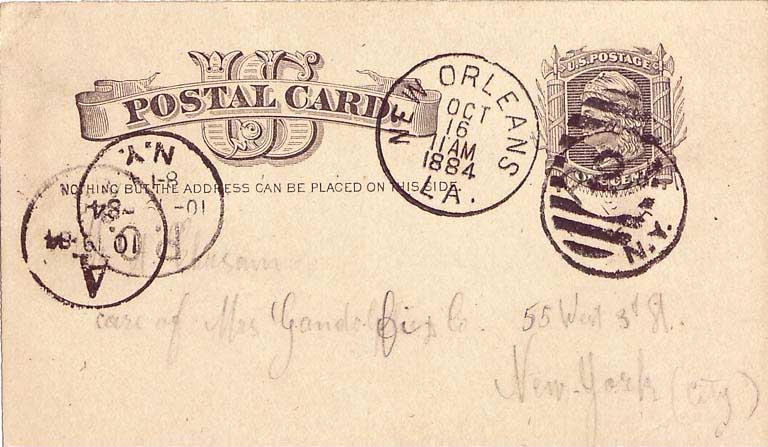 US
POSTAL CARD
U.S. POSTAGE
ONE CENT
NEW ORLEANS
OCT
16
11 AM
1884
LA.
NOTHING BUT THE ADDRESS CAN BE PLACED ON THIS SIDE.
N.Y.
10-
-84
P.O.
A
10 19 84
N.Y.
care of Mrs Gandolfi & Co. 55 West 3d St.
New-York (City)